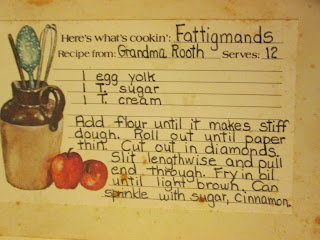 Here's what's cookin': Fattigmands
Recipe from: Grandma Rooth Serves: 12
1 egg yolk
1 T. sugar
1 T. cream
Add flour until it makes stiff
dough. Roll out until paper
thin. Cut out in diamonds.
Slit lengthwise and pull
end through. Fry in oil
until light brown. Can
sprinkle with sugar, Cinnamon.